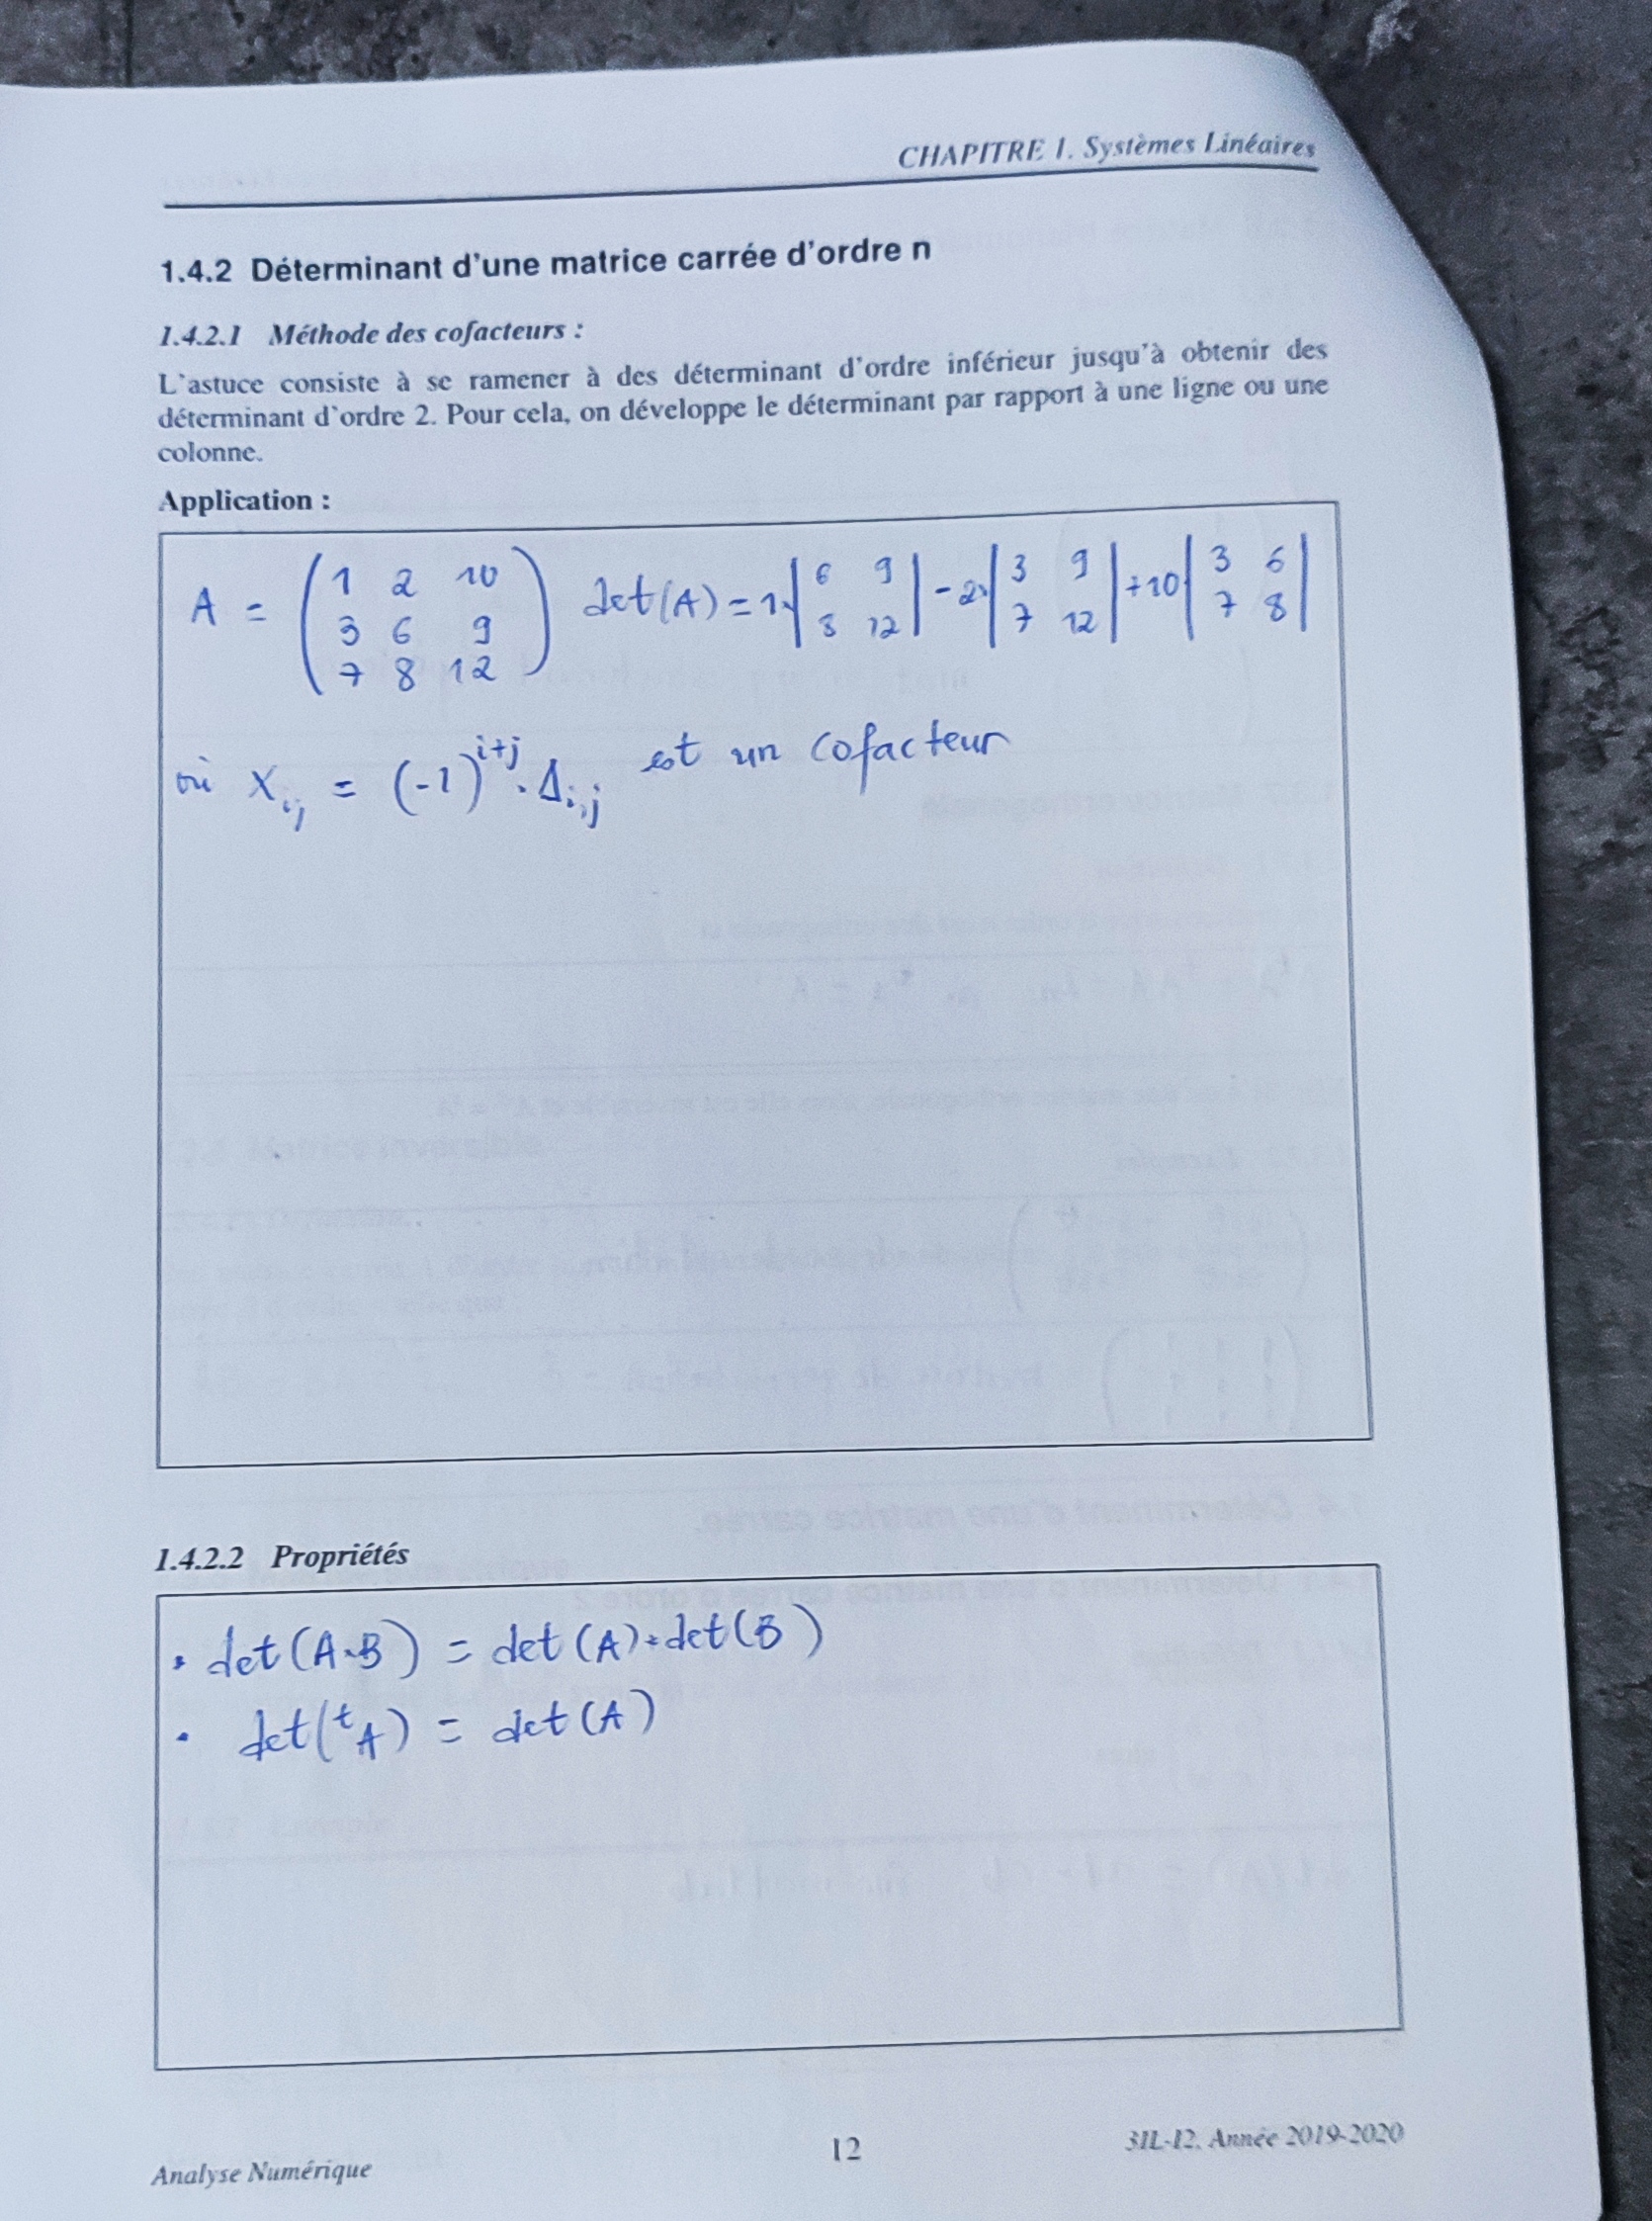 CHAPITRE 1. Systèmes Linéaires
1.4.2 Déterminant d'une matrice carrée d'ordre n
1.4.2.1 Méthode des cofacteurs :
L'astuce consiste à se ramener à des déterminant d'ordre inférieur jusqu'à obtenir des
déterminant d'ordre 2. Pour cela, on développe le déterminant par rapport à une ligne ou une
colonne.
Application :
A = (1 2 10 ; 3 6 9 ; 7 8 12) det(A) = 1·|6 9 ; 8 12| - 2·|3 9 ; 7 12| + 10·|3 6 ; 7 8|
où X_{ij} = (-1)^{i+j} · Δ_{i,j} est un cofacteur
1.4.2.2 Propriétés
• det(A·B) = det(A)·det(B)
• det(ᵗA) = det(A)
Analyse Numérique 12 3IL-I2. Année 2019-2020